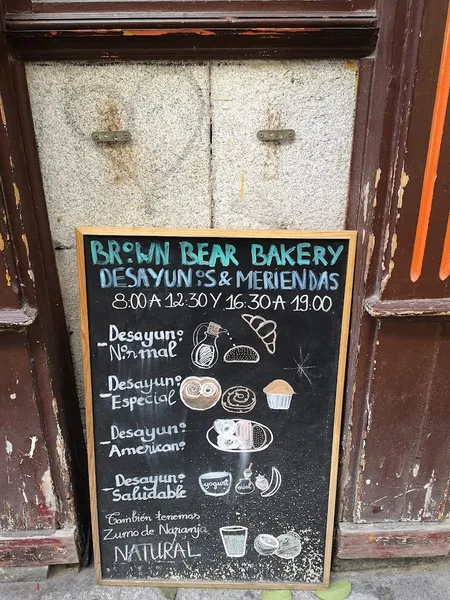 BROWN BEAR BAKERY
DESAYUNOS & MERIENDAS
8:00 A 12:30 Y 16:30 A 19:00
- Desayuno
Normal
- Desayuno
Especial
- Desayuno
Americano
- Desayuno
Saludable
yogurt
miel
También tenemos
Zumo de Naranja
NATURAL